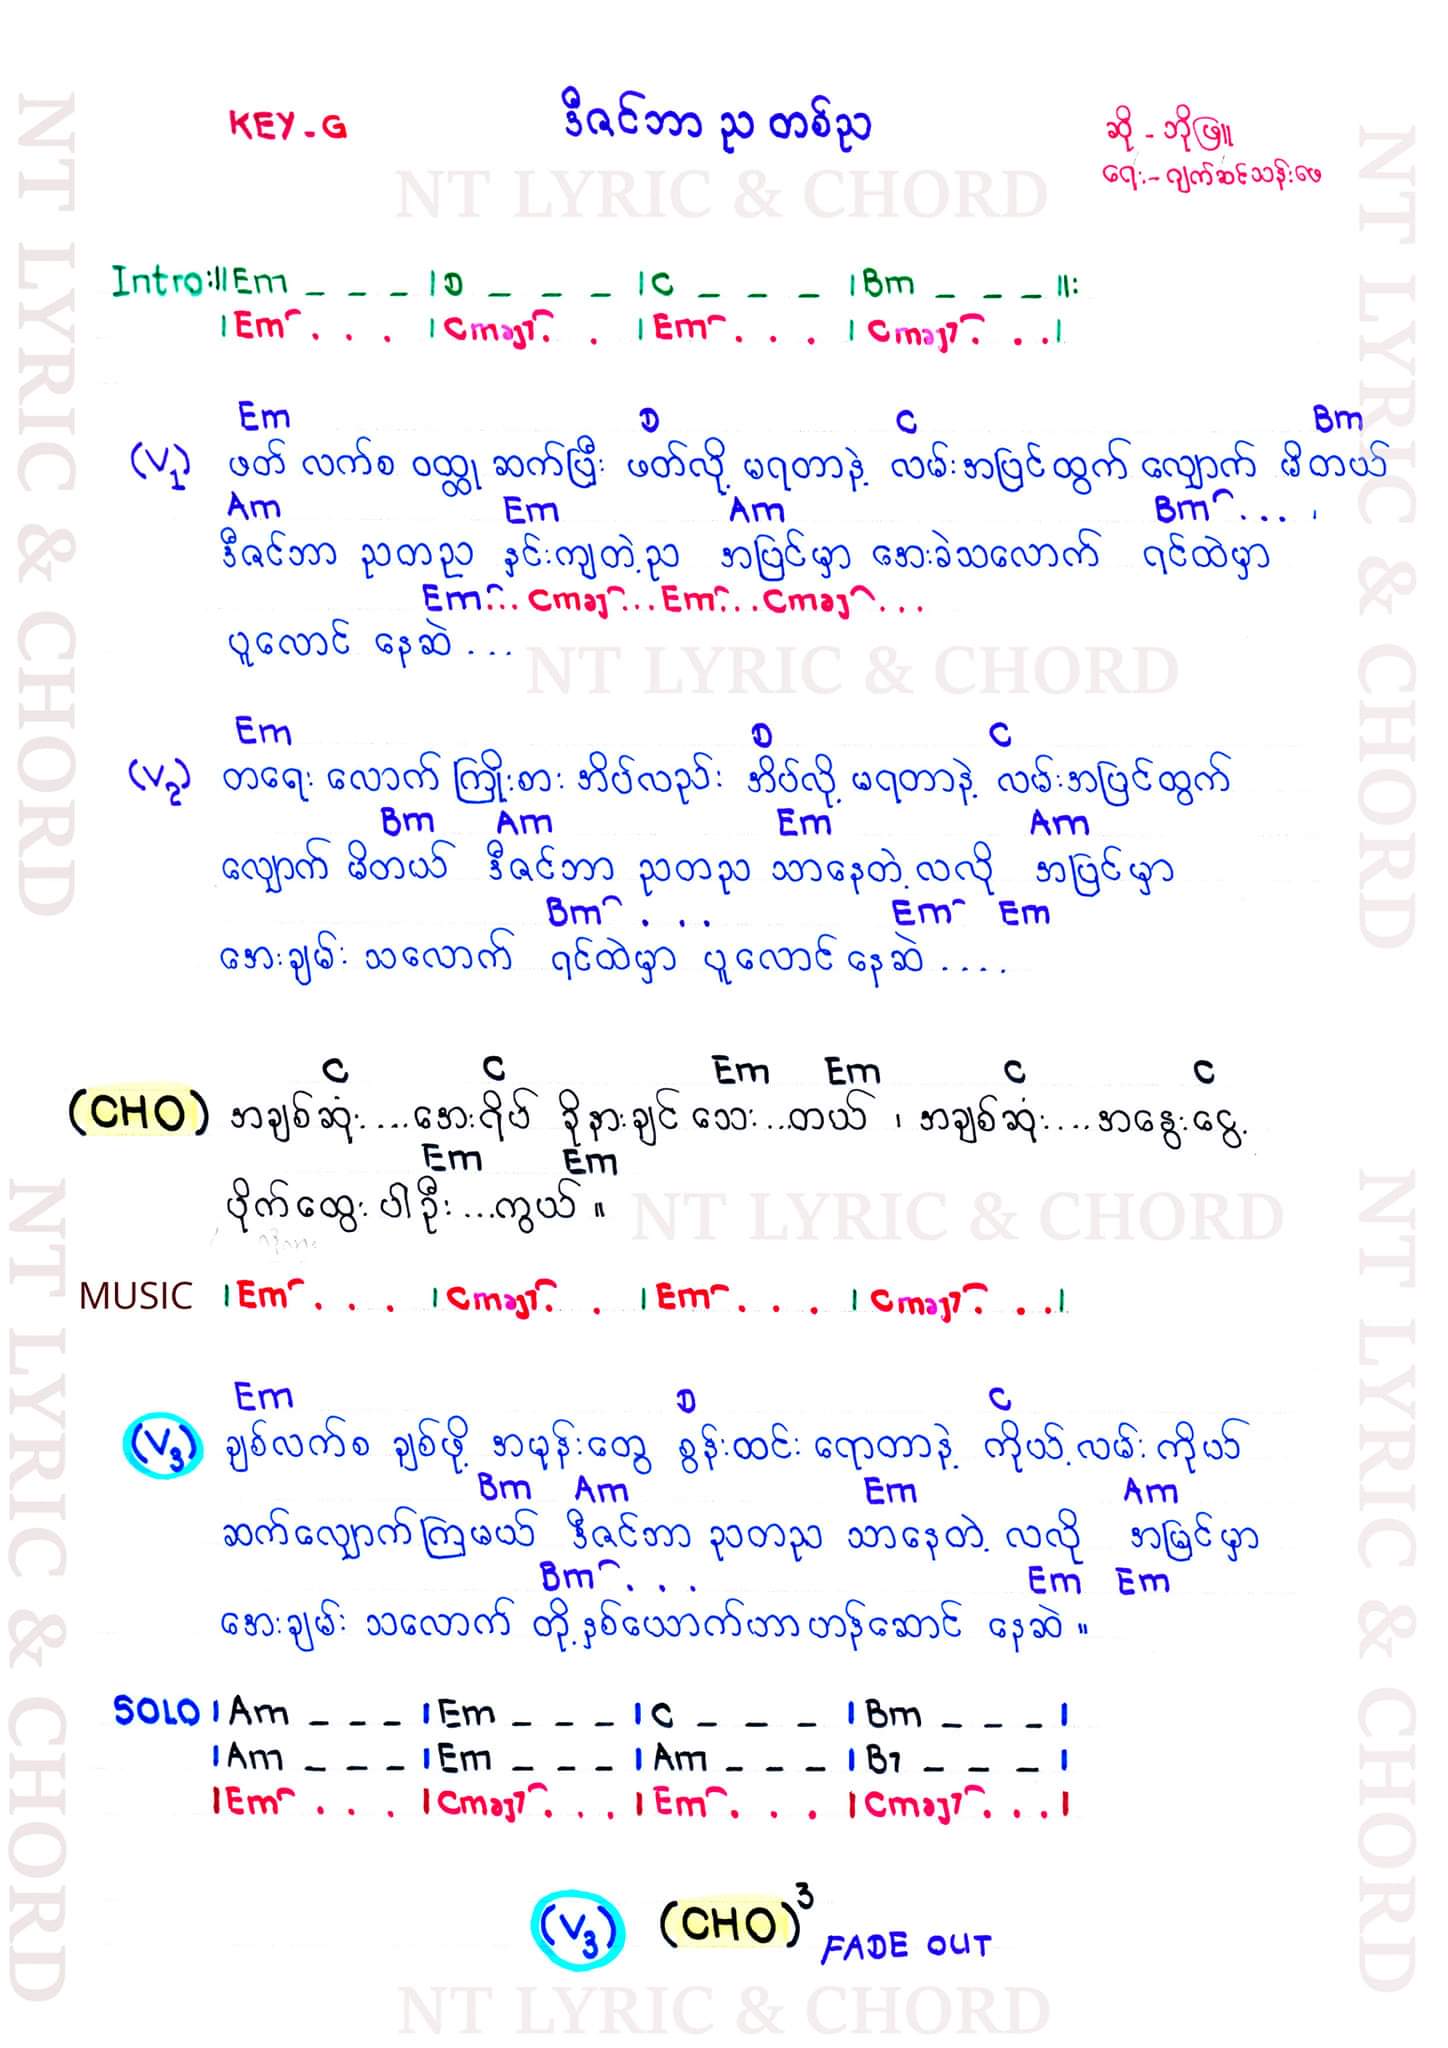 KEY-G
ဒီဇင်ဘာ ည တစ်ည
ဆို - ဘိုဖြူ
ရေး - ဂျက်ဆင်သန်းဖေ
NT LYRIC & CHORD
Intro:||Em _ _ _ |D _ _ _ |C _ _ _ |Bm _ _ _ ||:
|Em . . . |Cmaj7 . . |Em . . . |Cmaj7 . . . |
Em D C Bm
(V1) ဖတ် လက်စ ဝတ္ထု ဆက်ပြီး ဖတ်လို့ မရတာနဲ့ လမ်းအပြင်ထွက် လျှောက် မိတယ်
Am Em Am Bm . . .
ဒီဇင်ဘာ ညတည နှင်းကျတဲ့ည အပြင်မှာ အေးခဲသလောက် ရင်ထဲမှာ
Em... Cmaj... Em... Cmaj...
ပူလောင် နေဆဲ ...
NT LYRIC & CHORD
Em D C
(V2) တရေး လောက် ကြိုးစား အိပ်လည်း အိပ်လို့ မရတာနဲ့ လမ်းအပြင်ထွက်
Bm Am Em Am
လျှောက် မိတယ် ဒီဇင်ဘာ ညတည သာနေတဲ့ လလို အပြင်မှာ
Bm . . . Em Em
အေးချမ်း သလောက် ရင်ထဲမှာ ပူလောင် နေဆဲ ....
C C Em Em C C
(CHO) အချစ်ဆုံး ...အေးရိပ် ခိုနားချင် သေး...တယ် ၊ အချစ်ဆုံး ... အနွေးငွေ့
Em Em
ဖိုက်ထွေး ပါဦး ...ကွယ် ။
NT LYRIC & CHORD
MUSIC |Em . . . |Cmaj7 . . |Em . . . |Cmaj7 . . . |
Em D C
(V3) ချစ်လက်စ ချစ်ဖို့ အမုန်းတွေ စွန်းထင်း ရောတာနဲ့ ကိုယ့်လမ်း ကိုယ်
Bm Am Em Am
ဆက်လျှောက်ကြမယ် ဒီဇင်ဘာ ညတည သာနေတဲ့ လလို အပြင်မှာ
Bm . . . Em Em
အေးချမ်း သလောက် တို့နှစ်ယောက်ဟာ ဟန်ဆောင် နေဆဲ ။
SOLO |Am _ _ _ |Em _ _ _ |C _ _ _ |Bm _ _ _ |
|Am _ _ _ |Em _ _ _ |Am _ _ _ |B7 _ _ _ |
|Em . . . |Cmaj7 . . . |Em . . . |Cmaj7 . . . |
(V3) (CHO)3 FADE OUT
NT LYRIC & CHORD
NT LYRIC & CHORD
NT LYRIC & CHORD
NT LYRIC & CHORD
NT LYRIC & CHORD